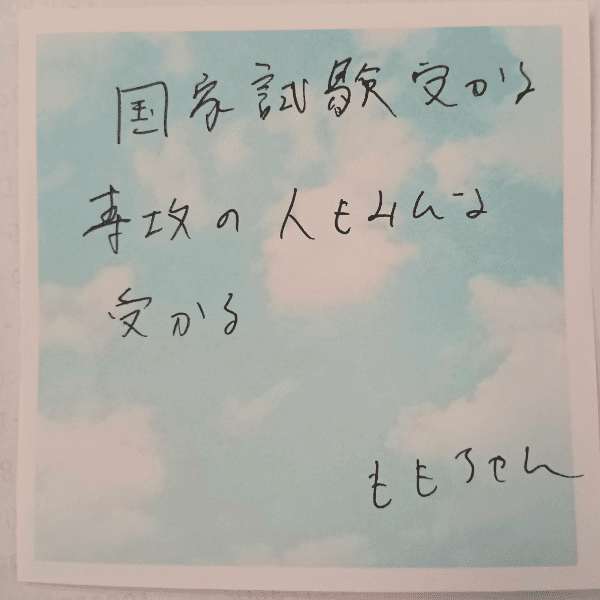 国家試験受かる
専攻の人もみんな
受かる
ももちゃん